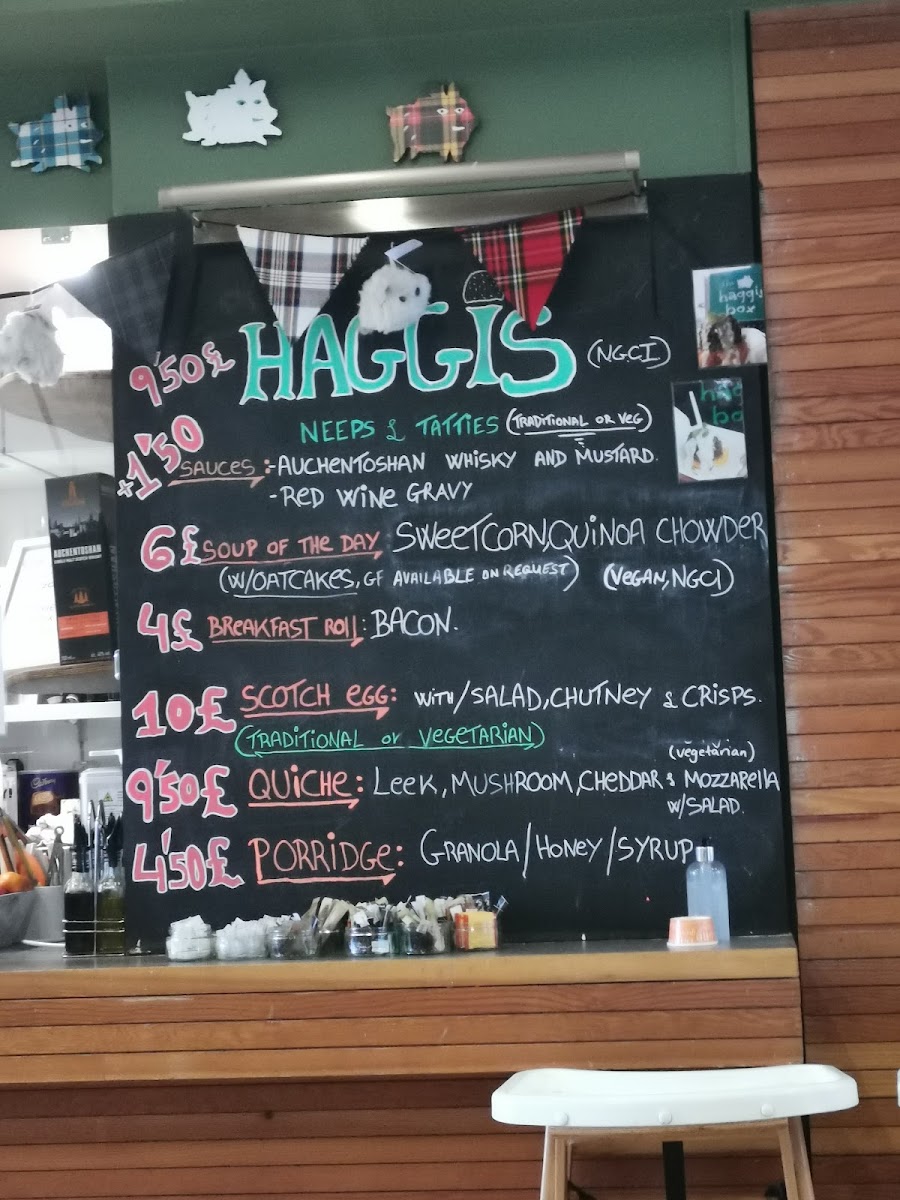 9'50£ HAGGIS (NGCI)
NEEPS & TATTIES (TRADITIONAL OR VEG)
+1'50 SAUCES:-AUCHENTOSHAN WHISKY AND MUSTARD.
-RED WINE GRAVY
6£ SOUP OF THE DAY, SWEETCORN, QUINOA CHOWDER
(W/OATCAKES, GF AVAILABLE ON REQUEST) (VEGAN, NGCI)
4£ BREAKFAST ROLL: BACON.
10£ SCOTCH EGG: WITH/SALAD, CHUTNEY & CRISPS.
(TRADITIONAL or VEGETARIAN)
(vegetarian)
9'50£ QUICHE: LEEK, MUSHROOM, CHEDDAR & MOZZARELLA
W/SALAD.
4'50£ PORRIDGE: GRANOLA/HONEY/SYRUP
the
haggis
box
AUCHENTOSHAN
Cadbury